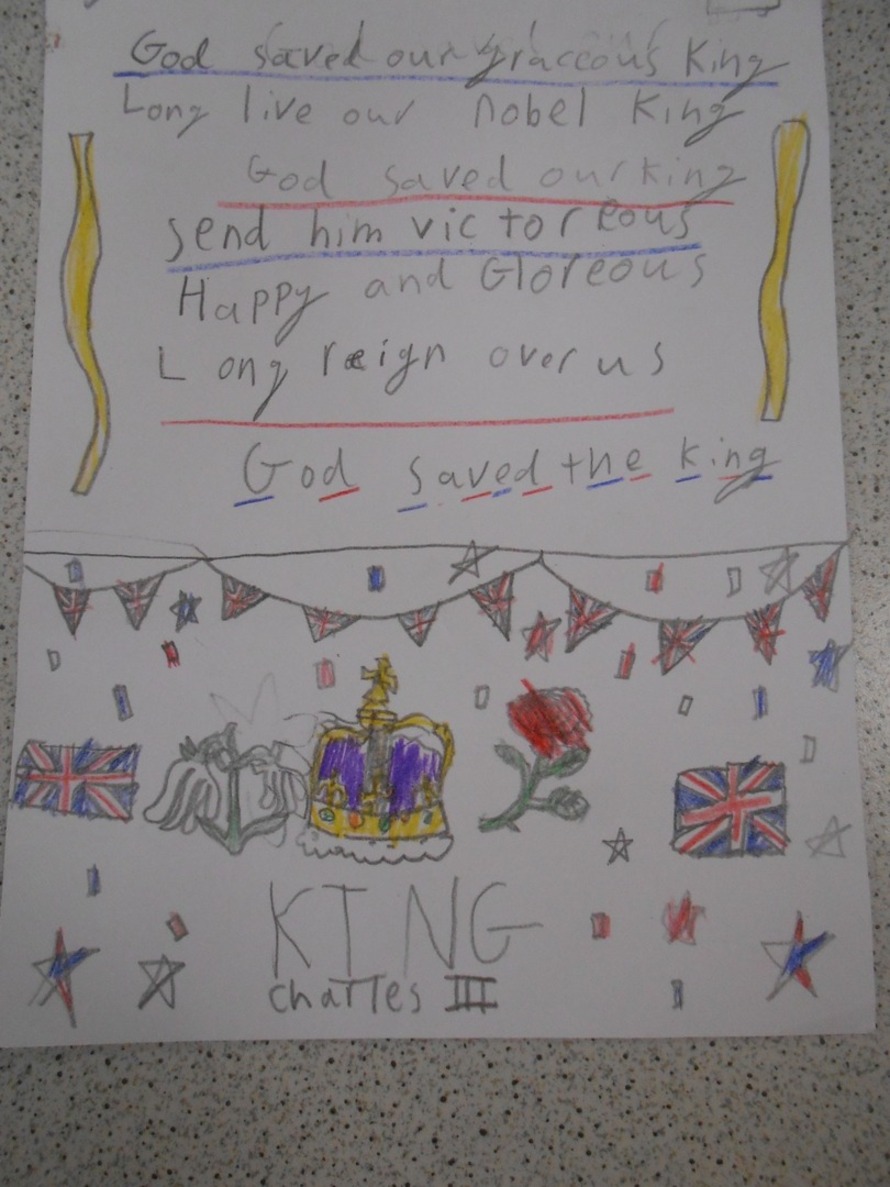 God saved our graceous King
Long live our nobel King
God saved our king
send him victoreous
Happy and Gloreous
Long reign over us
God saved the king
KING
charles III